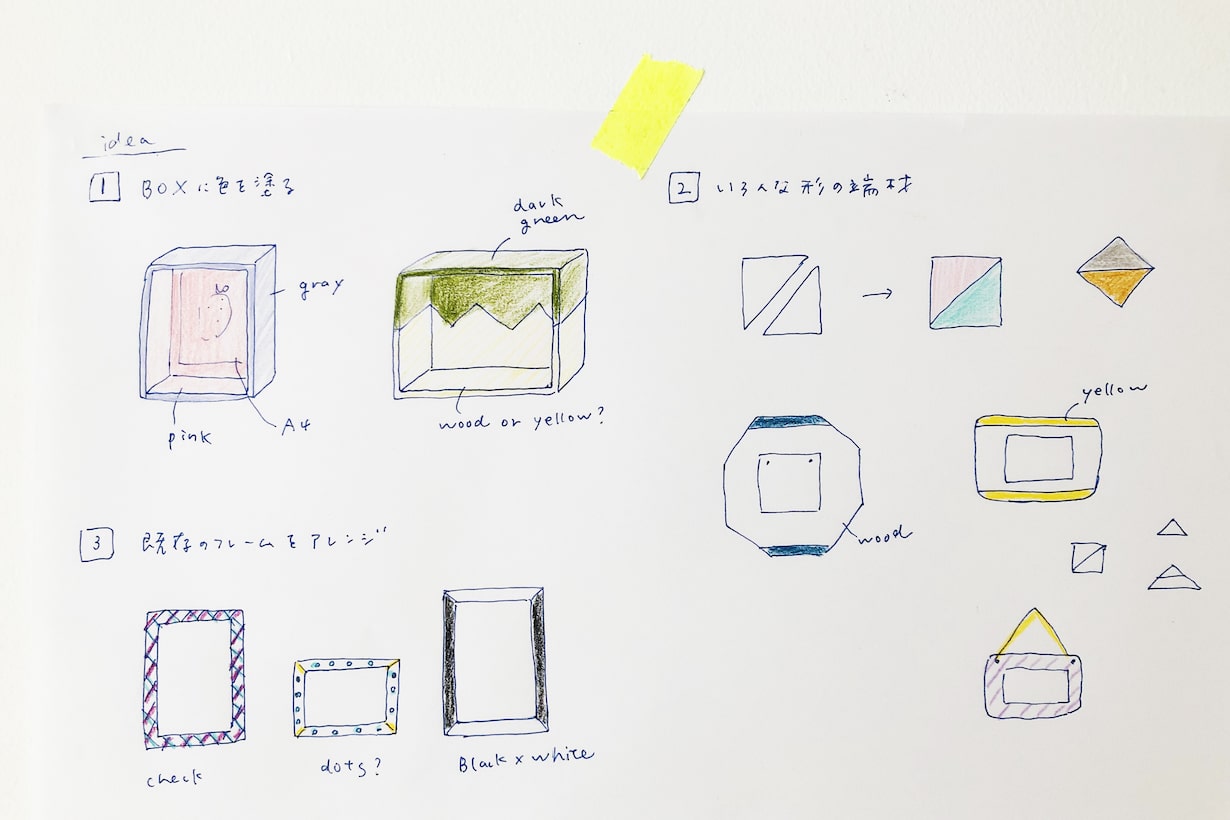 idea
1 BOXに色を塗る
gray
pink
A4
dark
green
wood or yellow?
2 いろんな形の端材
yellow
wood
3 既存のフレームをアレンジ
check
dots?
Black x white